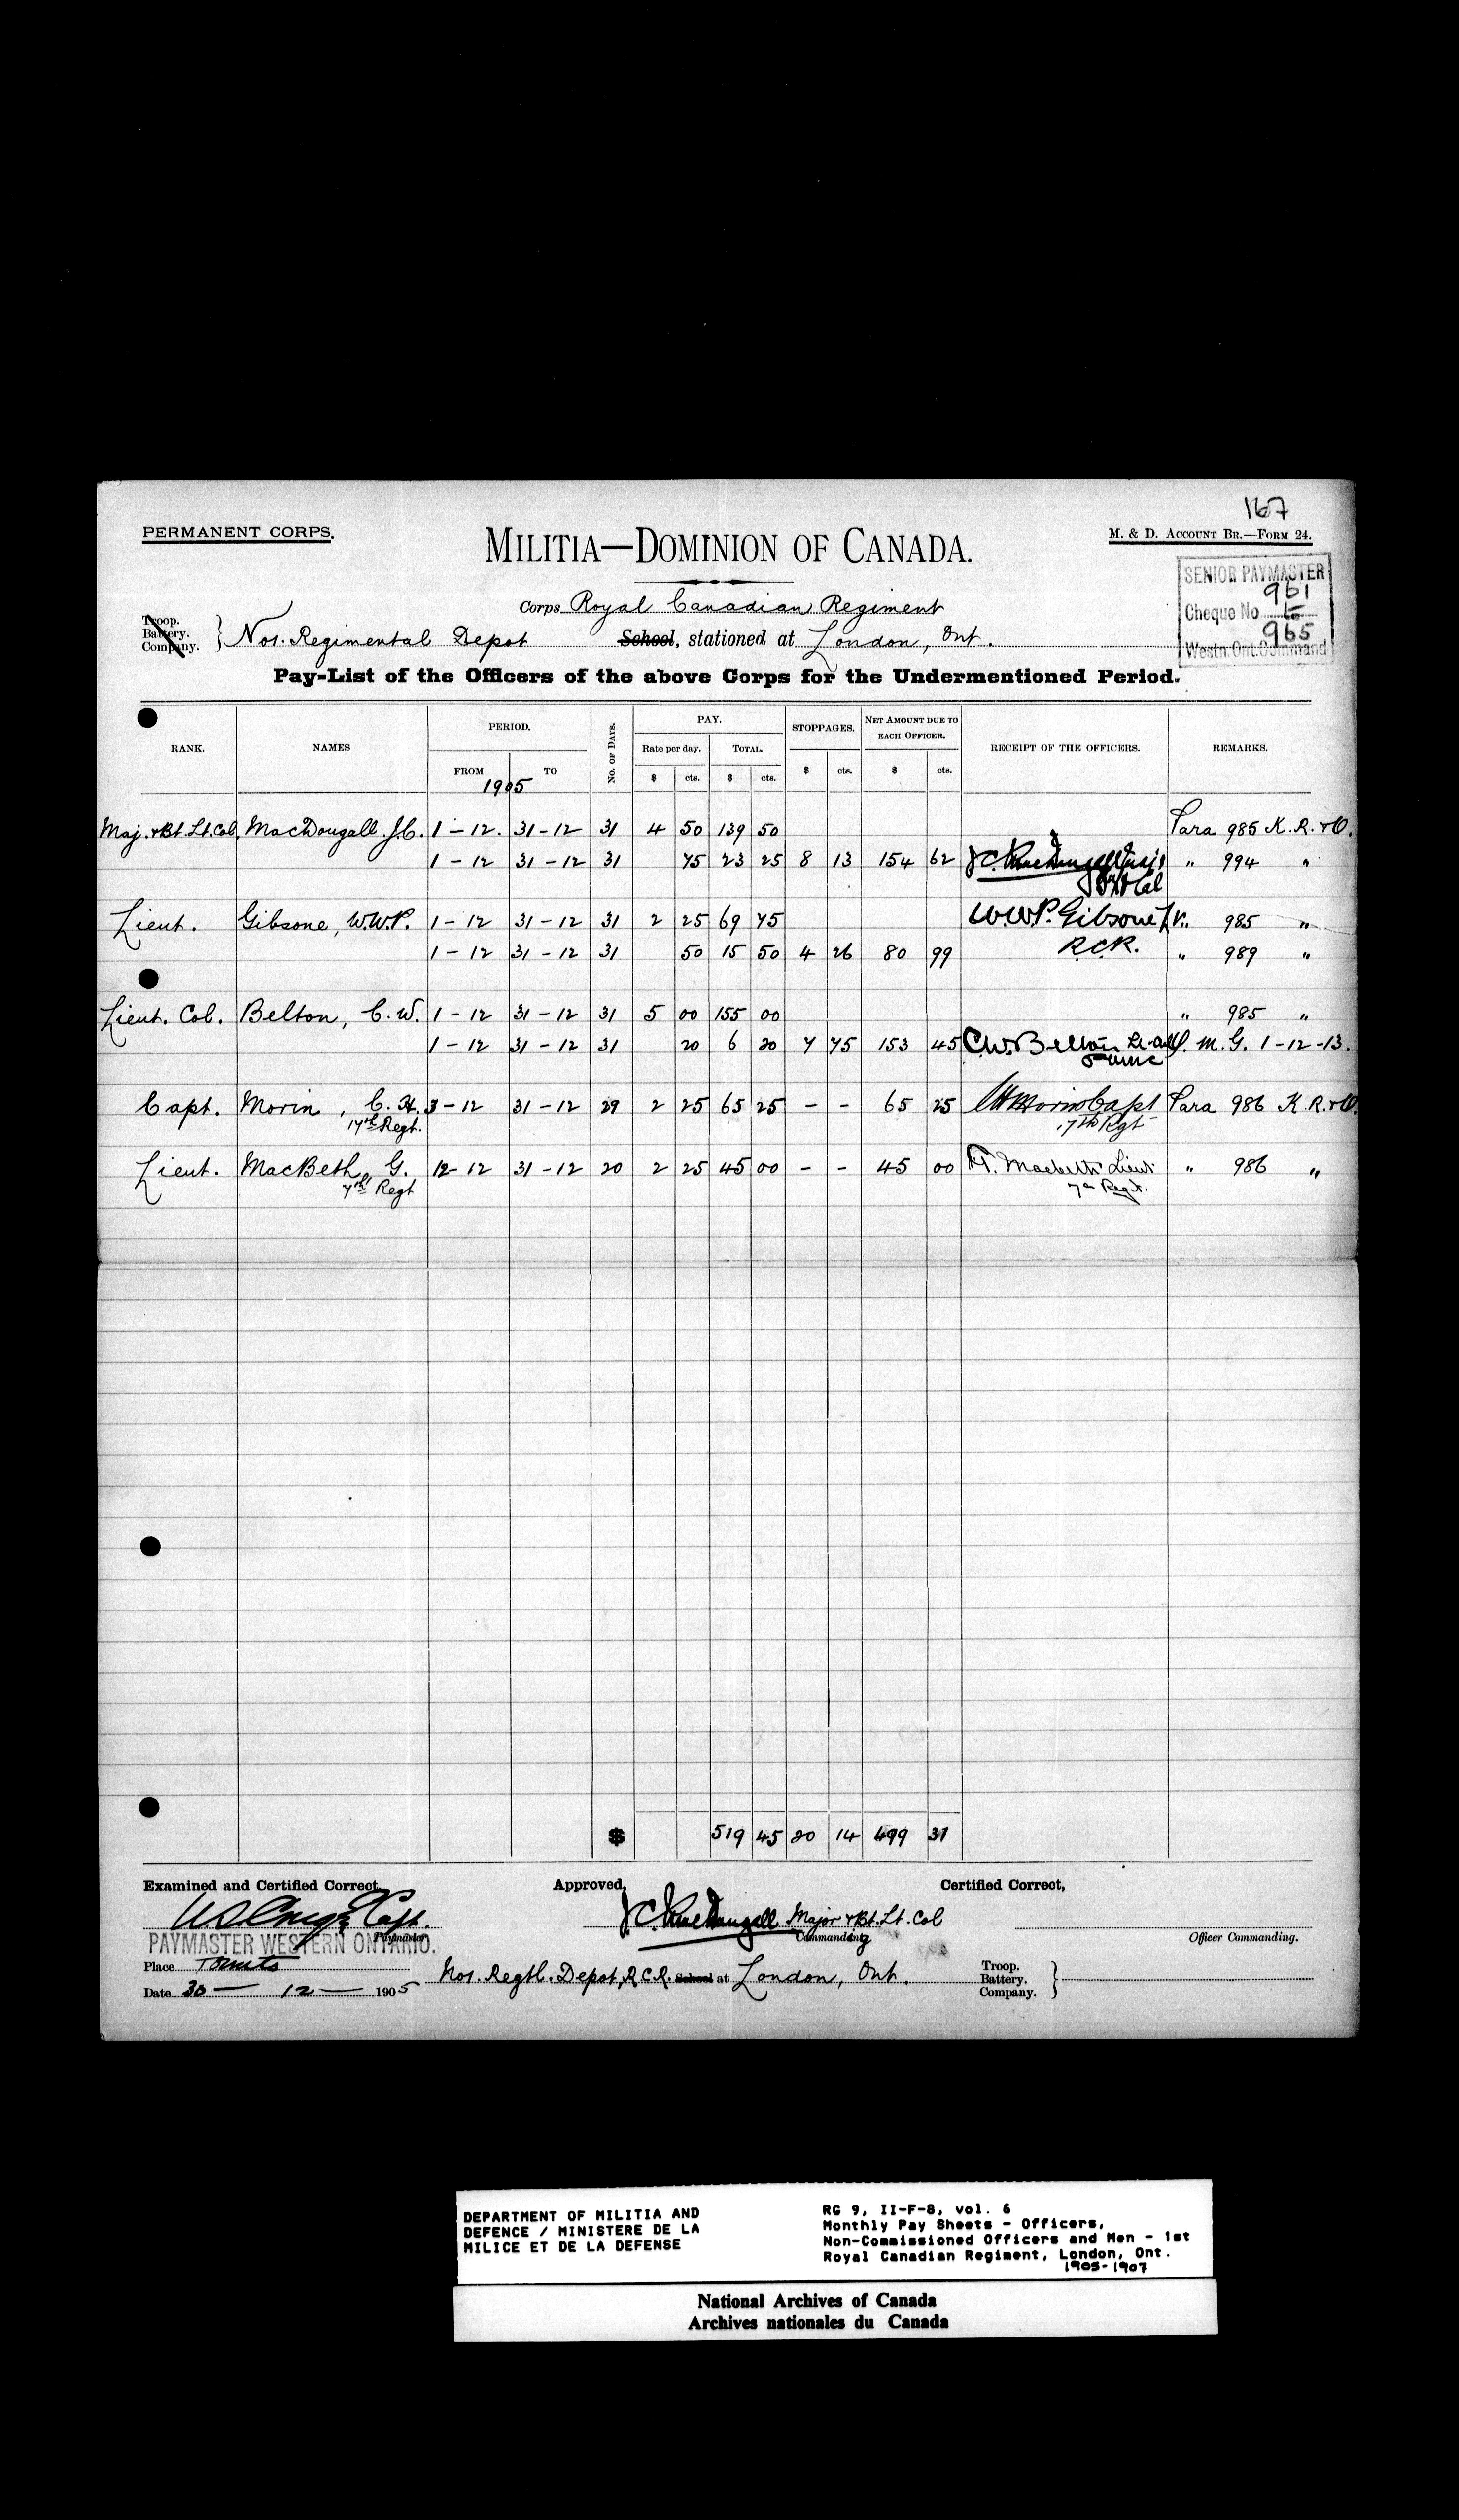 167
PERMANENT CORPS.
MILITIA—DOMINION OF CANADA.
M. & D. ACCOUNT BR.—FORM 24.
SENIOR PAYMASTER
961
Cheque No to
965
Westn. Ont. Command
Corps Royal Canadian Regiment
Troop.
Battery.
Company.
No1. Regimental Depot School, stationed at London, Ont.
Pay-List of the Officers of the above Corps for the Undermentioned Period.
RANK. NAMES PERIOD. No. OF DAYS. PAY. STOPPAGES. NET AMOUNT DUE TO EACH OFFICER. RECEIPT OF THE OFFICERS. REMARKS.
Rate per day. TOTAL.
FROM TO $ cts. $ cts. $ cts. $ cts.
1905
Maj. & Bt. Lt. Col. MacDougall J.C. 1-12. 31-12 31 4 50 139 50 Para 985 K.R. & O.
1-12 31-12 31 75 23 25 8 13 154 62 J.C. MacDougall Maj. " 994 "
Bt Lt Col
Lieut. Gibsone, W.W.P. 1-12 31-12 31 2 25 69 75 W.W.P. Gibsone Lt. " 985 "
1-12 31-12 31 50 15 50 4 26 80 99 R.C.R. " 989 "
Lieut. Col. Belton, C.W. 1-12 31-12 31 5 00 155 00 " 985 "
1-12 31-12 31 20 6 20 7 75 153 45 C.W. Belton Lt. Col. M.G. 1-12-13.
Capt. Morin, C.H. 3-12 31-12 29 2 25 65 25 - - 65 25 CH Morin Capt Para 986 K.R. & O.
17th Regt. 17th Rgt
Lieut. MacBeth, G. 12-12 31-12 20 2 25 45 00 - - 45 00 G. Macbeth Lieut " 986 "
7th Regt 7th Regt.
$ 519 45 20 14 499 31
Examined and Certified Correct, Approved, Certified Correct,
Capt. J.C. MacDougall Major & Bt. Lt. Col
Paymaster. Commanding Officer Commanding.
PAYMASTER WESTERN ONTARIO.
Place Toronto No1. Regtl. Depot, R.C.R. School at London, Ont. Troop.
Battery.
Company.
Date 30 — 12 — 1905
DEPARTMENT OF MILITIA AND
DEFENCE / MINISTERE DE LA
MILICE ET DE LA DEFENSE
RG 9, II-F-8, vol. 6
Monthly Pay Sheets - Officers,
Non-Commissioned Officers and Men - 1st
Royal Canadian Regiment, London, Ont.
1905-1907
National Archives of Canada
Archives nationales du Canada